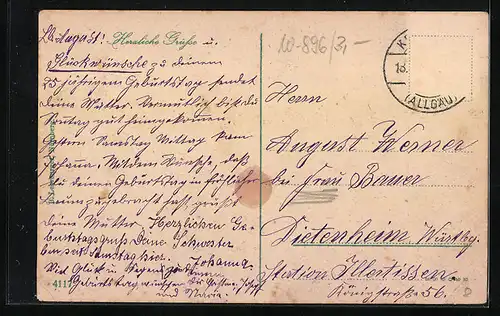 Lb. August! Herzliche Grüße u.
Glückwünsche zu deinem
25 jährigem Geburtstag sendet
deine Mutter. Vermutlich bist du
Sontag gut heimgekommen.
Gestern Samstag Mittag kam
Johanna. Mit dem Wunsche, daß
du deinen Geburtstag in fröhlicher
verbracht hast grüßt
deine Mutter. Herzlichen Ge-
burtstagsgruß Deine Schwester
Samstag hier. Johanna
Viel Glück u. Segen zum
Geburtstag wünschen
und Maria.
10-896/3,-
(ALLGÄU)
Herrn
August Werner
bei Frau Bauer
Dietenheim Württbg.
Station Illertissen
Königstraße 56.
411